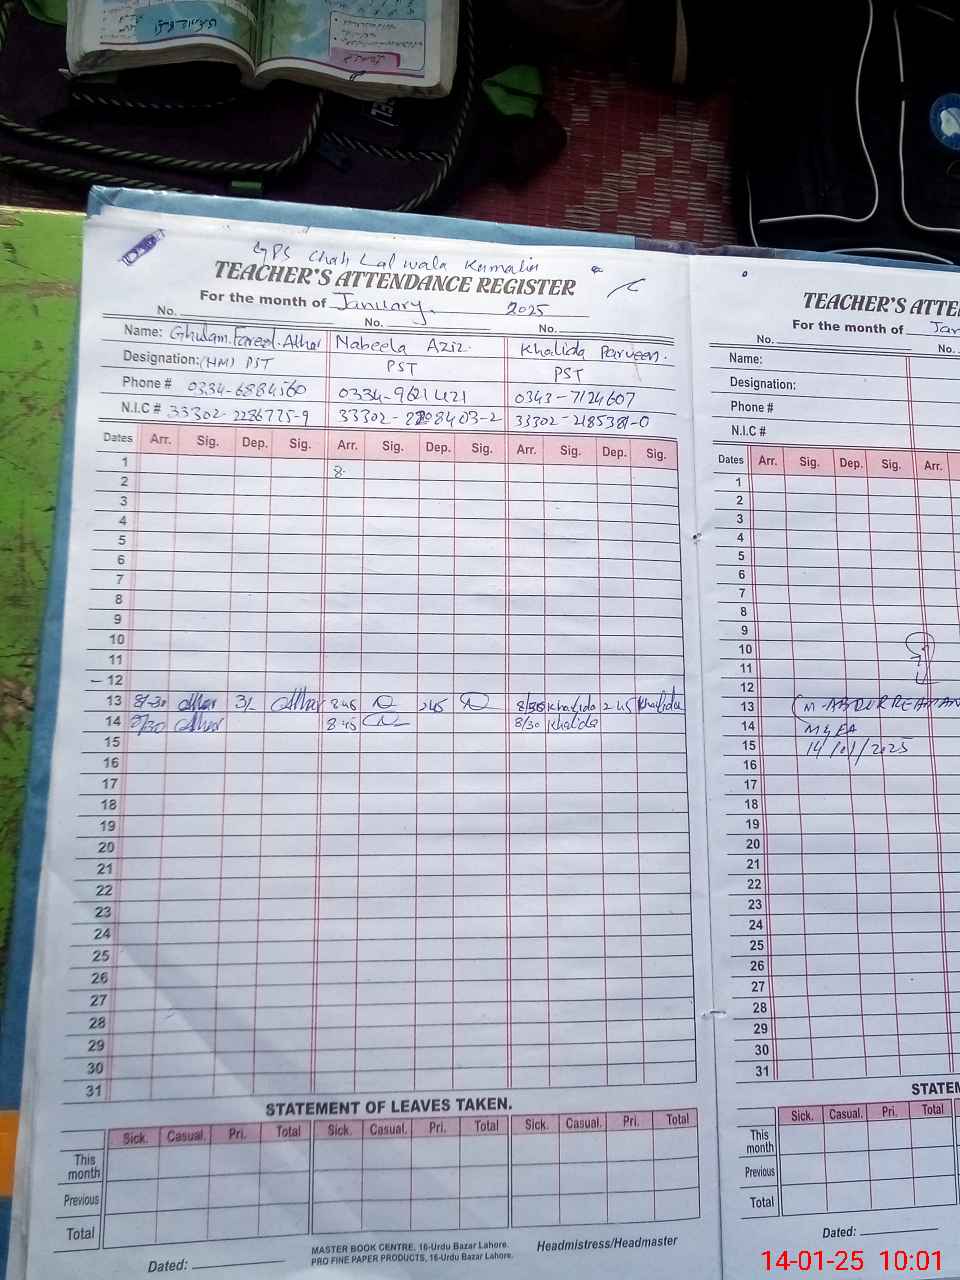 GPS Chah Lal wala Kamalia
TEACHER'S ATTENDANCE REGISTER
For the month of January 2025
No. No. No.
Name: Ghulam Fareed Athar Nabeela Aziz. Khalida Parveen.
Designation: (HM) PST PST PST
Phone # 0334-6884560 0334-9621421 0343-7124607
N.I.C # 33302-2286775-9 33302-8408403-2 33302-2185381-0
Dates Arr. Sig. Dep. Sig. Arr. Sig. Dep. Sig. Arr. Sig. Dep. Sig.
1
2 8-
3
4
5
6
7
8
9
10
11
12
13 8/30 Athar 3/ Athar 8 45 2 45 8/30 Khalida 2 45 Khalida
14 8/30 Athar 8 45 8/30 Khalida
15
16
17
18
19
20
21
22
23
24
25
26
27
28
29
30
31
STATEMENT OF LEAVES TAKEN.
Sick. Casual. Pri. Total Sick. Casual. Pri. Total Sick. Casual. Pri. Total
This month
Previous
Total
Dated:
MASTER BOOK CENTRE, 16-Urdu Bazar Lahore.
PRO FINE PAPER PRODUCTS, 16-Urdu Bazar Lahore.
Headmistress/Headmaster
TEACHER'S ATTE
For the month of Jan
No. No.
Name:
Designation:
Phone #
N.I.C #
Dates Arr. Sig. Dep. Sig. Arr.
1
2
3
4
5
6
7
8
9
10
11
12
13 M-ABDUR REHMAN
14 M&EA
15 14/01/2025
16
17
18
19
20
21
22
23
24
25
26
27
28
29
30
31
STATEM
Sick. Casual. Pri. Total
This month
Previous
Total
Dated:
14-01-25 10:01